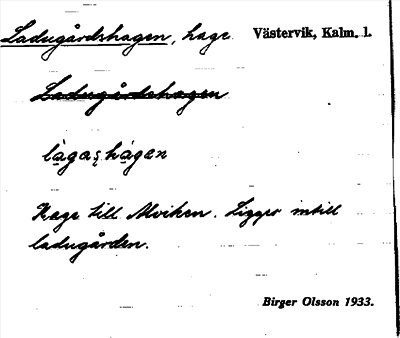 Ladugårdshagen, hage Västervik, Kalm. l.
Ladugårdshagen
lagas hagen
Hage till Alviken. Ligger intill
ladugården.
Birger Olsson 1933.